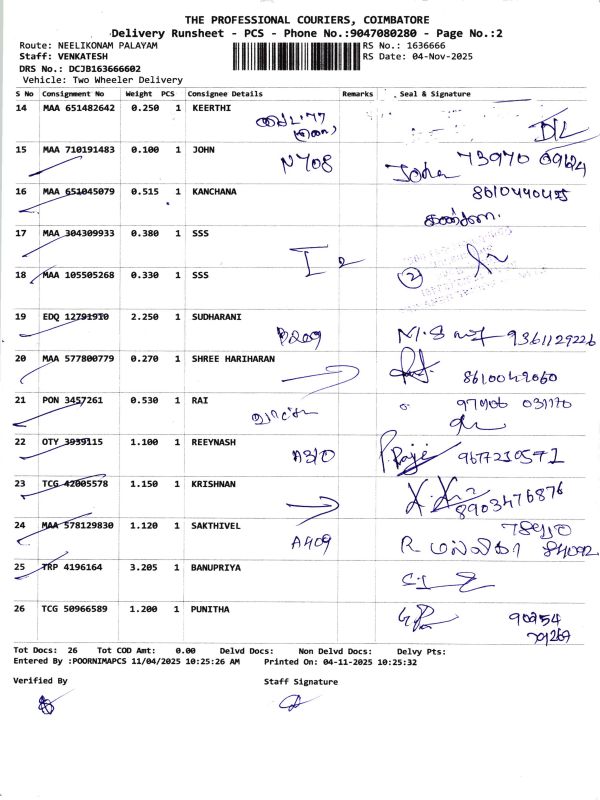 THE PROFESSIONAL COURIERS, COIMBATORE
Delivery Runsheet - PCS - Phone No.:9047080280 - Page No.:2
Route: NEELIKONAM PALAYAM RS No.: 1636666
Staff: VENKATESH RS Date: 04-Nov-2025
DRS No.: DCJB163666602
Vehicle: Two Wheeler Delivery
S No Consignment No Weight PCS Consignee Details Remarks Seal & Signature
14 MAA 651482642 0.250 1 KEERTHI
15 MAA 710191483 0.100 1 JOHN N708 John 73970 09624
16 MAA 651045079 0.515 1 KANCHANA
17 MAA 304309933 0.380 1 SSS
18 MAA 105505268 0.330 1 SSS 2
19 EDQ 12791910 2.250 1 SUDHARANI B209 9361129226
20 MAA 577800779 0.270 1 SHREE HARIHARAN 8610042060
21 PON 3457261 0.530 1 RAI
22 OTY 3939115 1.100 1 REEYNASH A310 P. Raji 9677230571
23 TCG 42005578 1.150 1 KRISHNAN 8903476876
24 MAA 578129830 1.120 1 SAKTHIVEL A409 R மல்லிகா 84092
25 TRP 4196164 3.205 1 BANUPRIYA
26 TCG 50966589 1.200 1 PUNITHA
Tot Docs: 26 Tot COD Amt: 0.00 Delvd Docs: Non Delvd Docs: Delvy Pts:
Entered By :POORNIMAPCS 11/04/2025 10:25:26 AM Printed On: 04-11-2025 10:25:32
Verified By Staff Signature